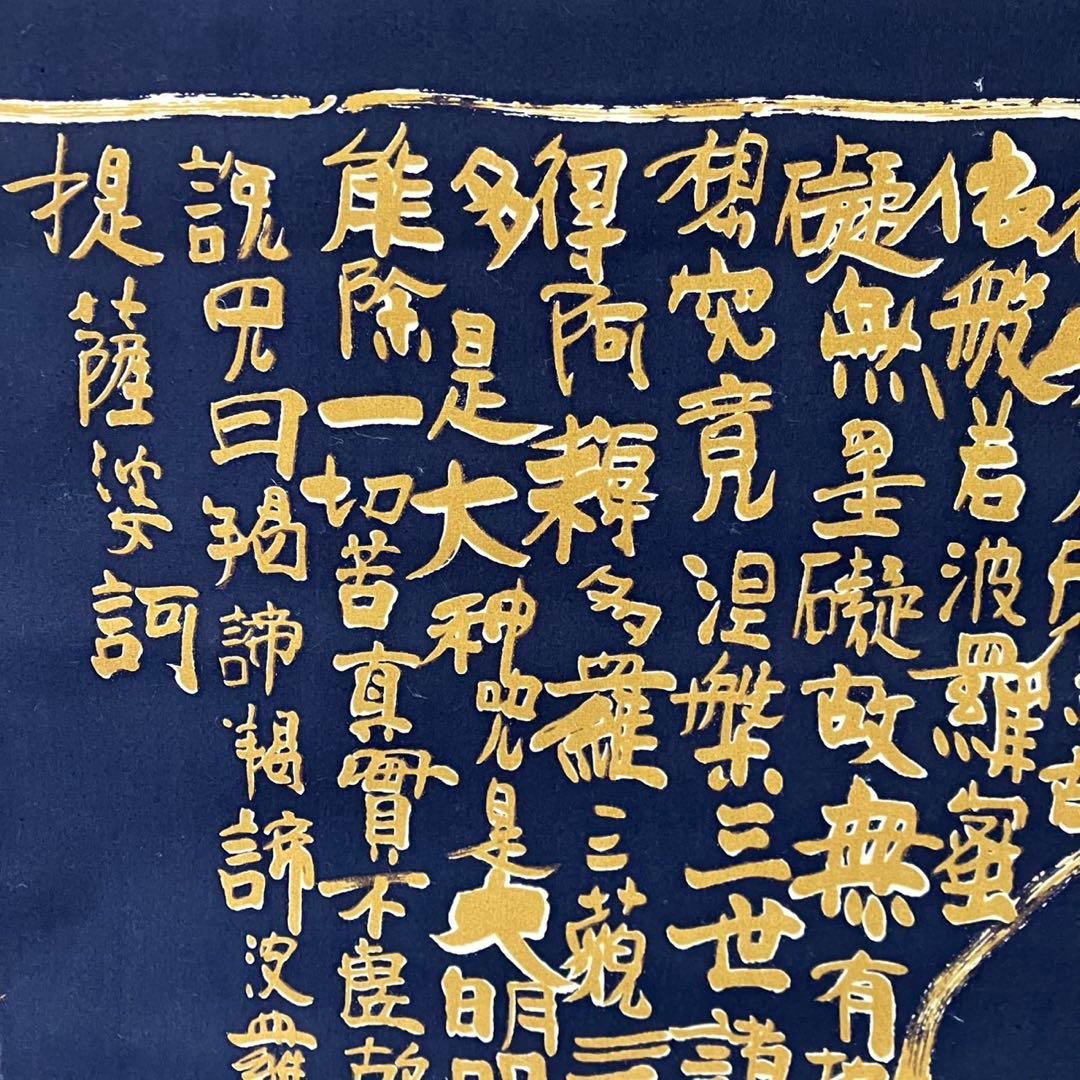 依般若波羅蜜
礙無罣礙故無有
想究竟涅槃三世諸
得阿耨多羅三藐三
多是大神呪是大明呪
能除一切苦真實不虚故
説呪曰羯諦羯諦波羅
提薩婆訶